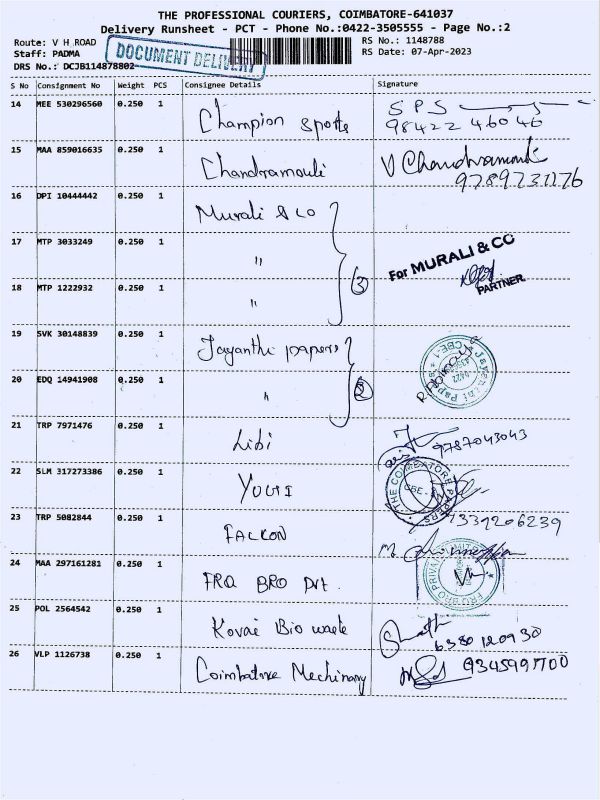 THE PROFESSIONAL COURIERS, COIMBATORE-641037
Delivery Runsheet - PCT - Phone No.:0422-3505555 - Page No.:2
Route: V H ROAD
Staff: PADMA
DRS No.: DCJB114878802
DOCUMENT DELIVERY
RS No.: 1148788
RS Date: 07-Apr-2023
S No Consignment No Weight PCS Consignee Details Signature
14 MEE 530296560 0.250 1 Champion sports SPS
98422 46046
15 MAA 859016635 0.250 1 Chandramouli V Chandramouli
9789731176
16 DPI 10444442 0.250 1 Murali & co
17 MTP 3033249 0.250 1 "
18 MTP 1222932 0.250 1 "
3
For MURALI & CO
PARTNER
19 SVK 30148839 0.250 1 Jayanthi papers
20 EDQ 14941908 0.250 1 "
2
Jayanthi Papers
0422
CBE-1
21 TRP 7971476 0.250 1 Libi 9787043043
22 SLM 317273386 0.250 1 YUGI
THE COIMBATORE PAPERS
CBE-
23 TRP 5082844 0.250 1 FALKON 7339206239
24 MAA 297161281 0.250 1 FRO BRO Pvt.
FRO BRO PRIVATE LIMITED
25 POL 2564542 0.250 1 Kovai Bio waste
6380120930
26 VLP 1126738 0.250 1 Coimbatore Mechinary 9345997700